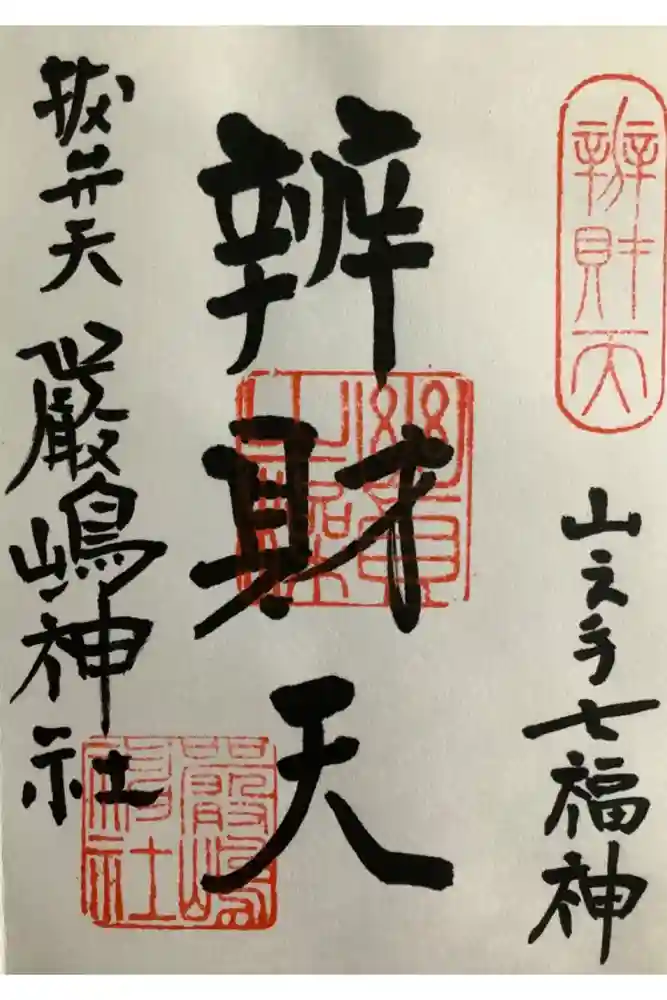 辨財天
山之手七福神
辨財天
抜弁天 厳嶋神社
嚴嶋神社